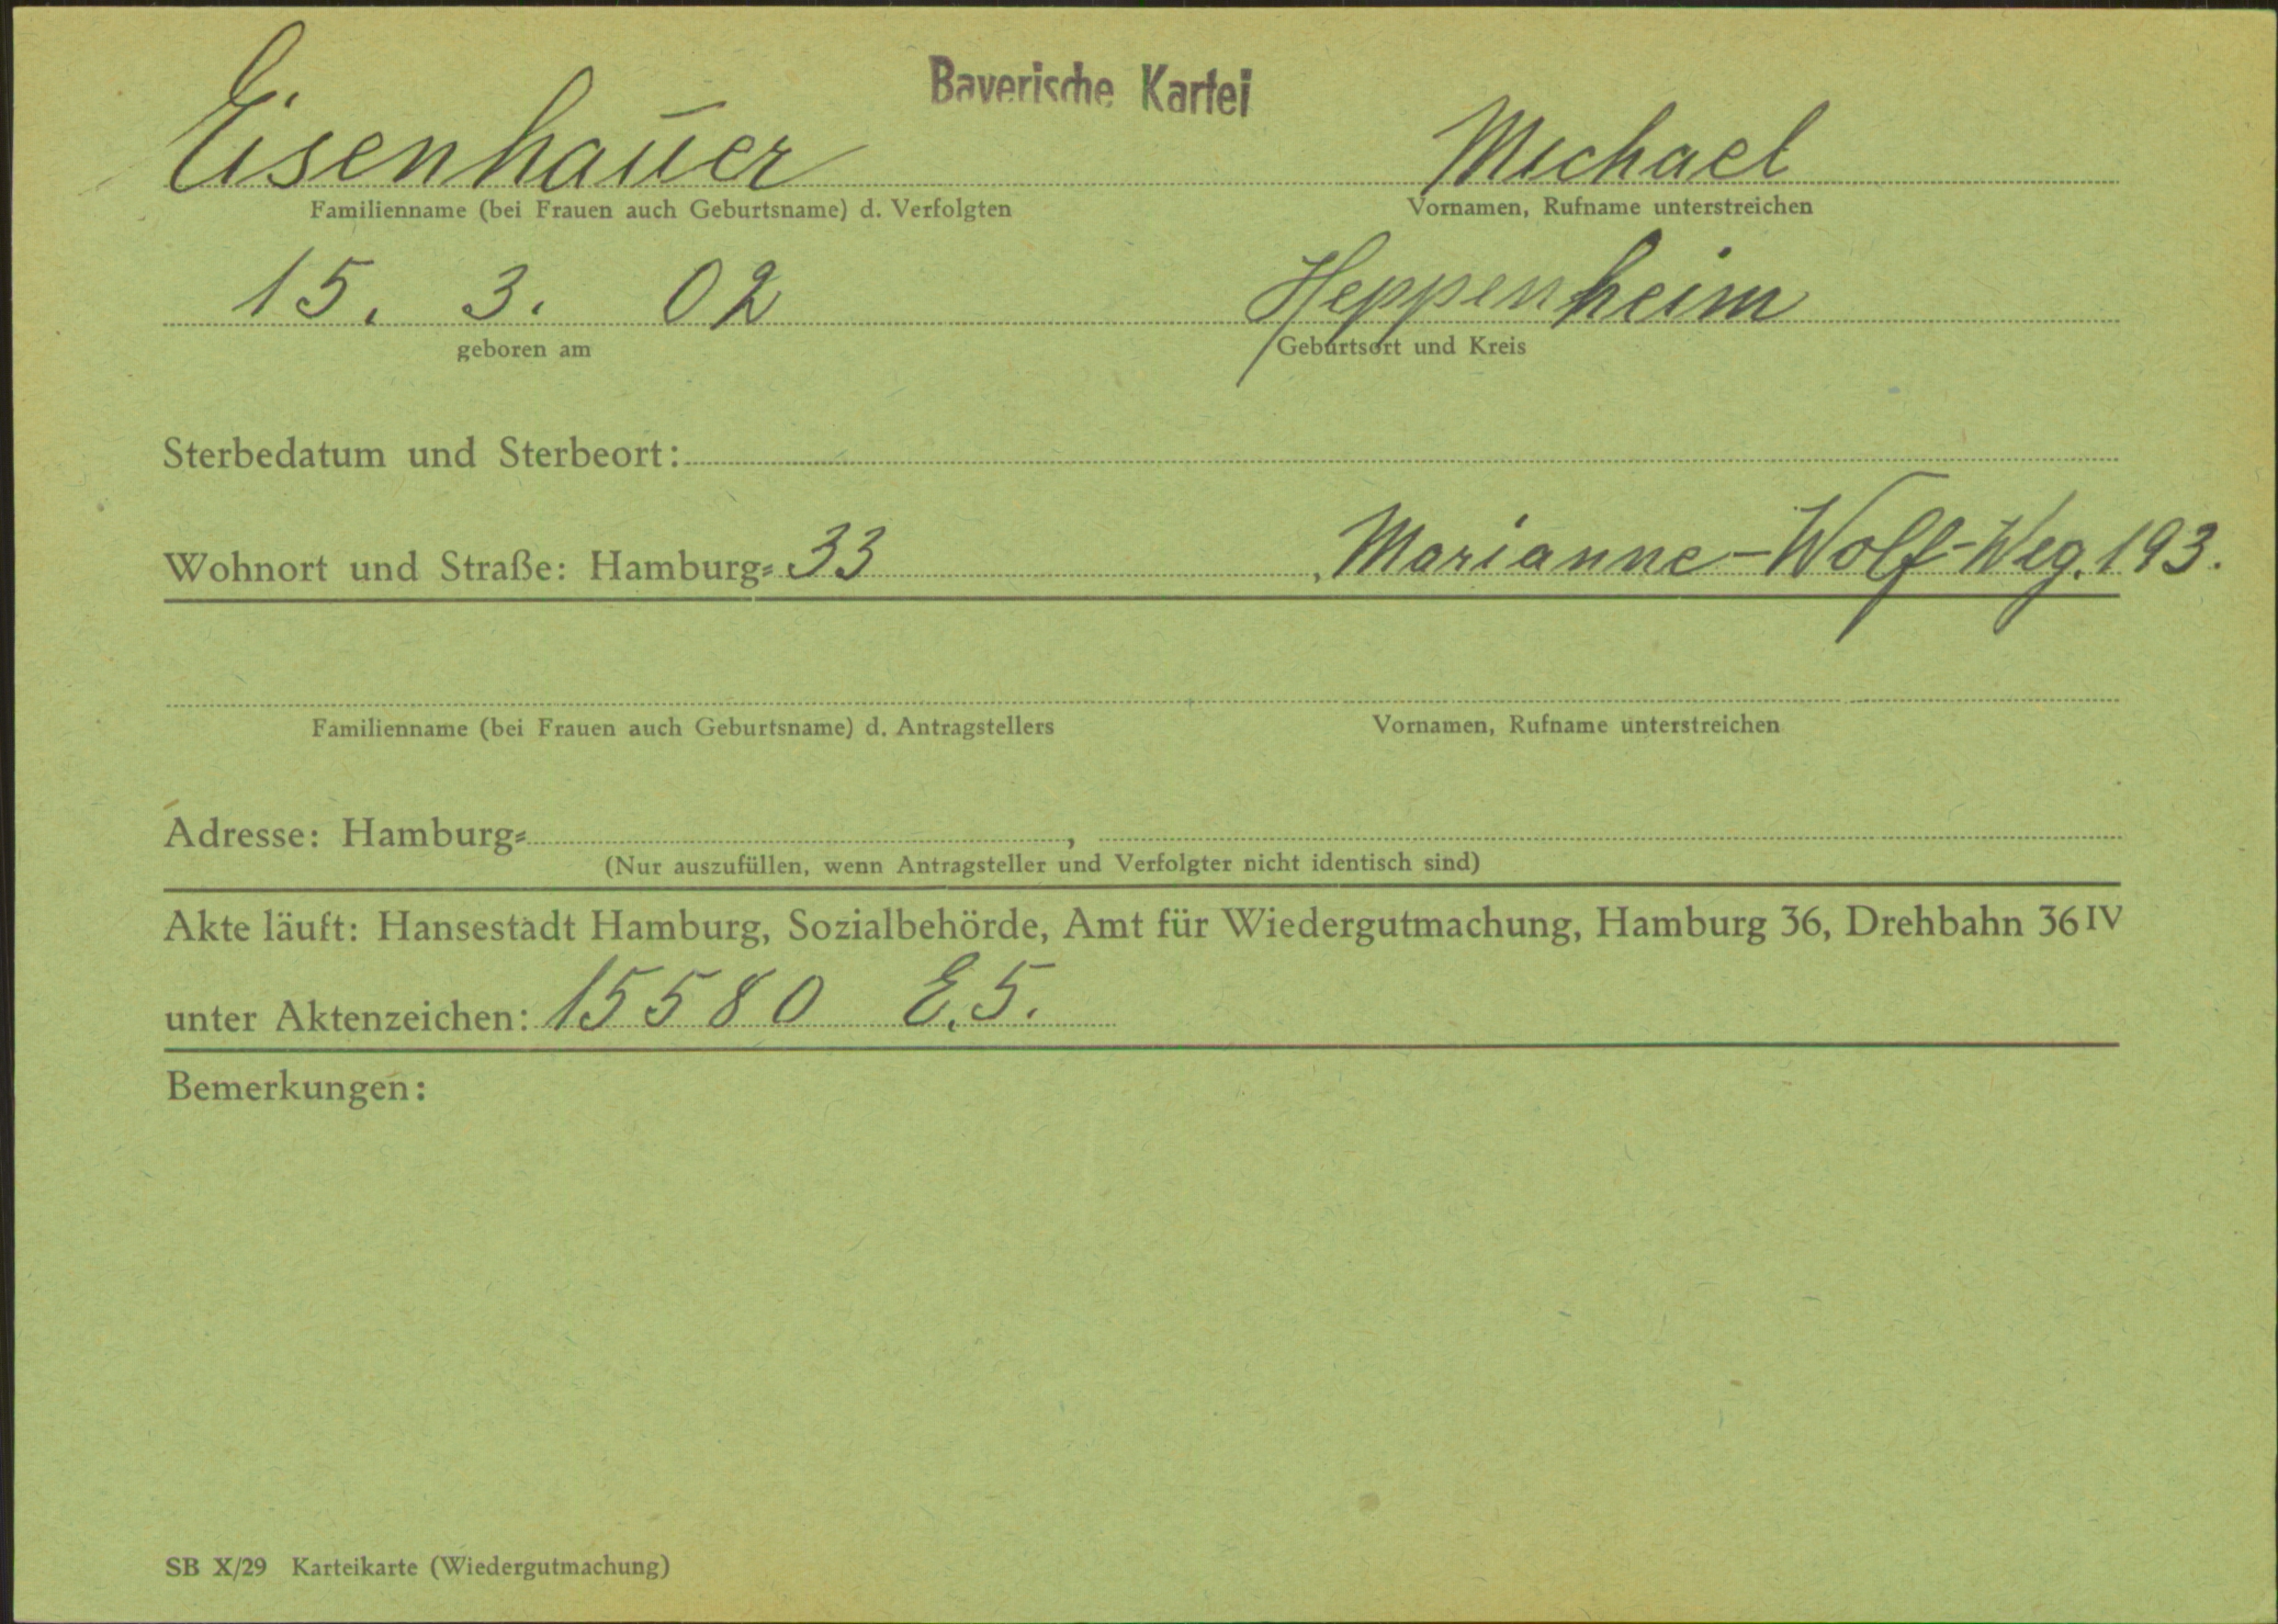 Bayerische Kartei
Eisenhauer Michael
Familienname (bei Frauen auch Geburtsname) d. Verfolgten Vornamen, Rufname unterstreichen
15. 3. 02 Heppenheim
geboren am Geburtsort und Kreis
Sterbedatum und Sterbeort:
Wohnort und Straße: Hamburg= 33 , Marianne-Wolff-Weg. 193.
Familienname (bei Frauen auch Geburtsname) d. Antragstellers Vornamen, Rufname unterstreichen
Adresse: Hamburg= ,
(Nur auszufüllen, wenn Antragsteller und Verfolgter nicht identisch sind)
Akte läuft: Hansestadt Hamburg, Sozialbehörde, Amt für Wiedergutmachung, Hamburg 36, Drehbahn 36 IV
unter Aktenzeichen: 15580 E.5.
Bemerkungen:
SB X/29 Karteikarte (Wiedergutmachung)